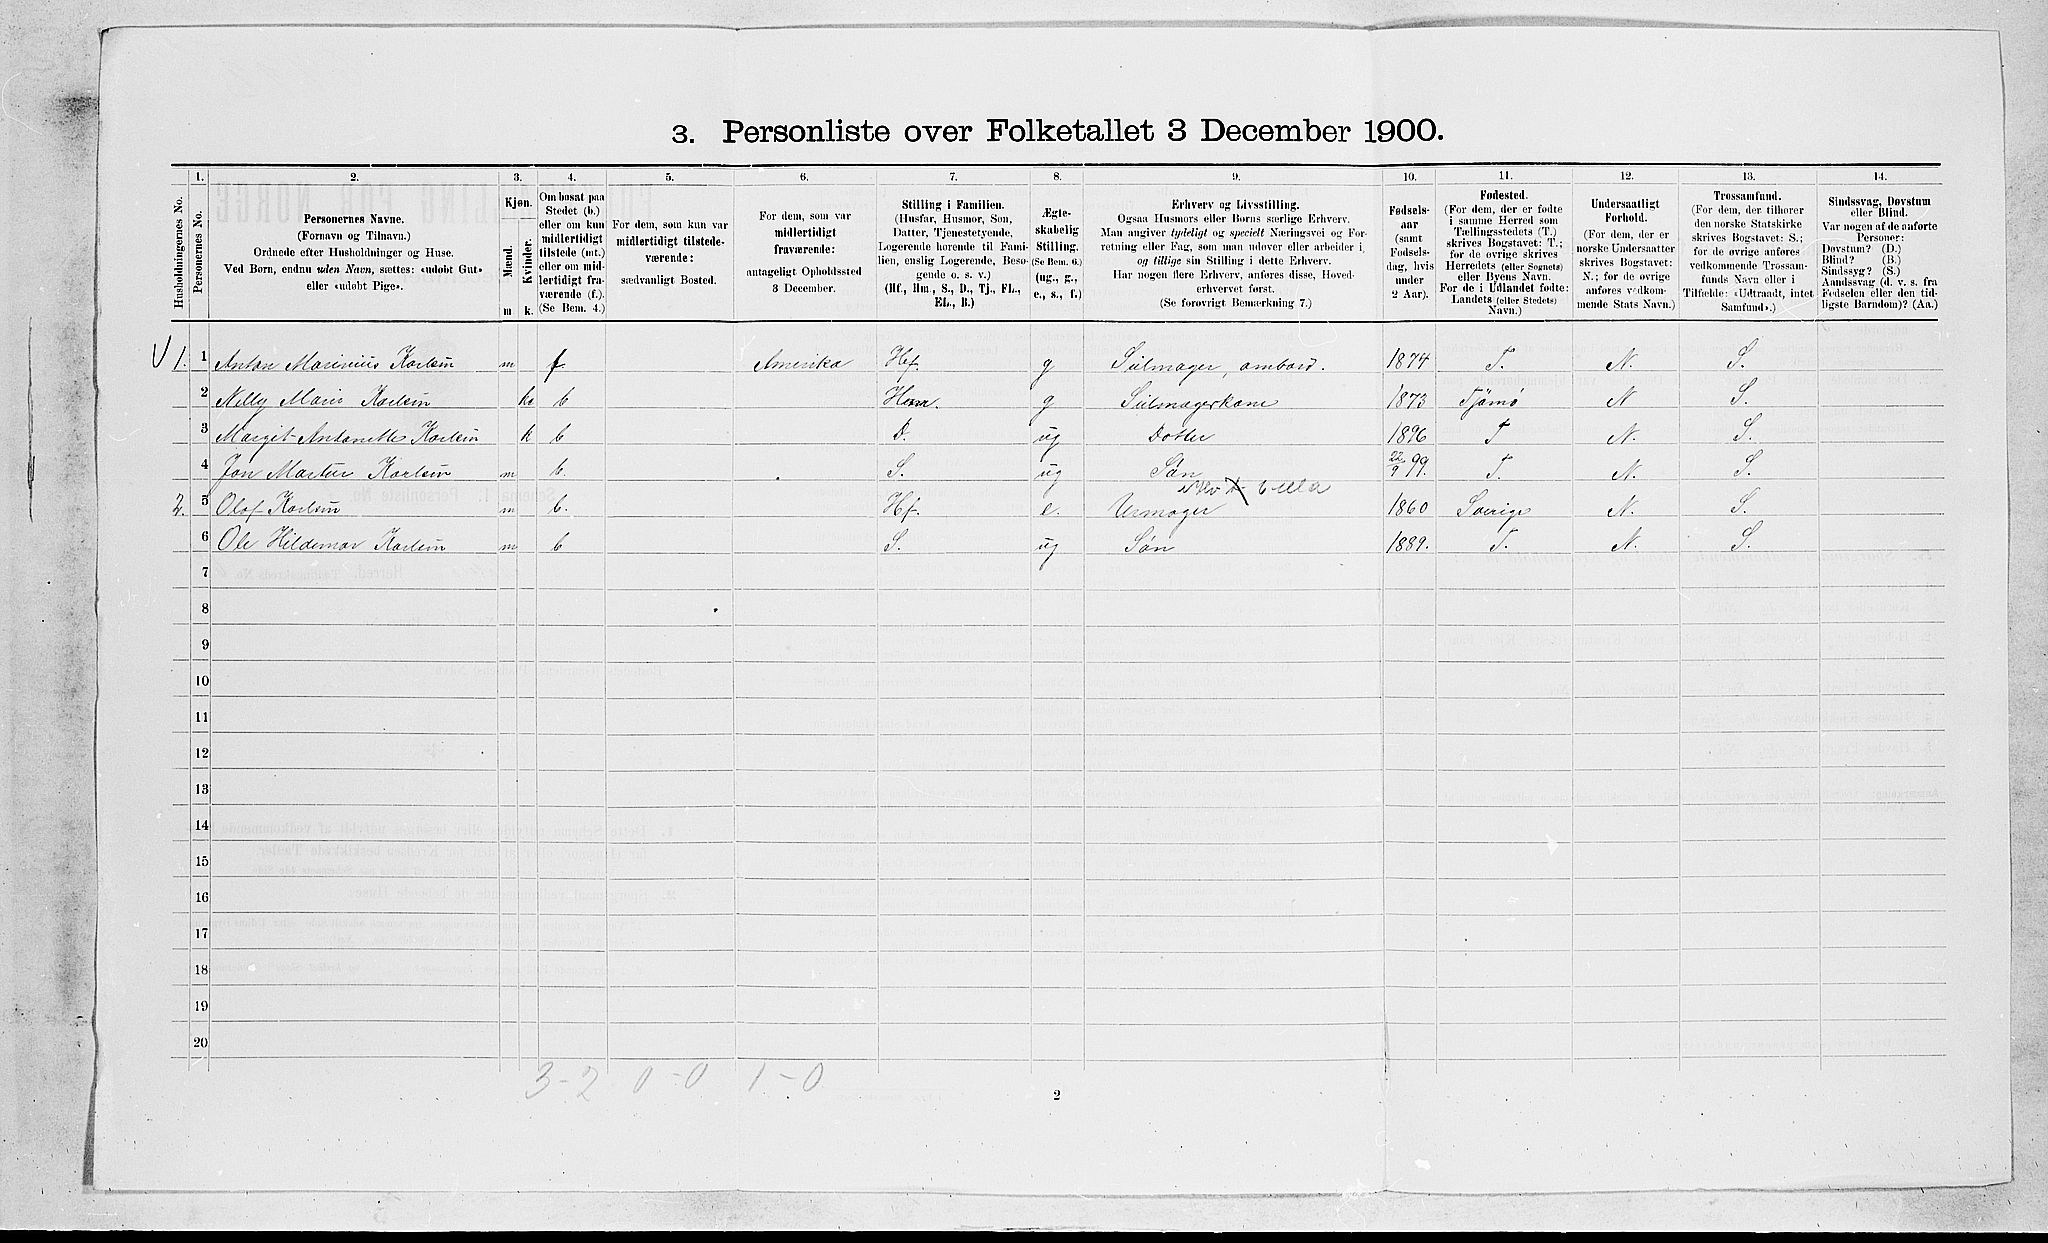 3. Personliste over Folketallet 3 December 1900.
Husholdningernes No.
1.
Personernes No.
2.
Personernes Navne.
(Fornavn og Tilnavn.)
Ordnede efter Husholdninger og Huse.
Ved Børn, endnu uden Navn, sættes: «udøbt Gut»
eller «udøbt Pige».
3.
Kjøn.
Mænd.
Kvinder.
m
k.
4.
Om bosat paa
Stedet (b.)
eller om kun
midlertidigt
tilstede (mt.)
eller om mid-
lertidigt fra-
værende (f.).
(Se Bem. 4.)
5.
For dem, som kun var
midlertidigt tilstede-
værende:
sædvanligt Bosted.
6.
For dem, som var
midlertidigt
fraværende:
antageligt Opholdssted
3 December.
7.
Stilling i Familien.
(Husfar, Husmor, Søn,
Datter, Tjenestetyende,
Logerende hørende til Fami-
lien, enslig Logerende, Besø-
gende o. s. v.)
(Hf., Hm., S., D., Tj., FL.,
EL., B.)
8.
Ægte-
skabelig
Stilling.
(Se Bem. 6.)
(ug., g.,
e., s., f.)
9.
Erhverv og Livsstilling.
Ogsaa Husmors eller Børns særlige Erhverv.
Man angiver tydeligt og specielt Næringsvei og For-
retning eller Fag, som man udøver eller arbeider i,
og tillige sin Stilling i dette Erhverv.
Har nogen flere Erhverv, anføres disse, Hoved-
erhvervet først.
(Se forøvrigt Bemærkning 7.)
10.
Fødsels-
aar
(samt
Fødsels-
dag, hvis
under
2 Aar).
11.
Fødested.
(For dem, der er fødte
i samme Herred som
Tællingsstedets (T.)
skrives Bogstavet: T.;
for de øvrige skrives
Herredets (eller Sognets)
eller Byens Navn.
For de i Udlandet fødte:
Landets (eller Stedets)
Navn.)
12.
Undersaatligt
Forhold.
(For dem, der er
norske Undersaatter
skrives Bogstavet:
N.; for de øvrige
anføres vedkom-
mende Stats Navn.)
13.
Trossamfund.
(For dem, der tilhører
den norske Statskirke
skrives Bogstavet: S.;
for de øvrige anføres
vedkommende Trossam-
funds Navn eller i
Tilfælde: «Udtraadt, intet
Samfund».)
14.
Sindssvag, Døvstum
eller Blind.
Var nogen af de anførte
Personer:
Døvstum? (D.)
Blind? (B.)
Sindssyg? (S.)
Aandssvag (d. v. s. fra
Fødselen eller den tid-
ligste Barndom)? (Aa.)
1. 1 Anton Marinius Karlsen m f Amerika Hf. g Seilmager, ombord. 1874 T. N. S.
2 Nelly Marie Karlsen k b Hm. g Seilmagerkone 1873 Tjømø N S.
3 Margit Antonette Karlsen k b D. ug Datter 1896 T N. S.
4 Karlsen m b. S. ug Søn 22/9 99. T. N. S.
2. 5 Olaf Karlsen m b. Hf. e. Urmager 1860 Sverige N. S.
6 Ole Hildemar Karlsen m b S. ug Søn 1889. T. N. S.
7
8
9
10
11
12
13
14
15
16
17
18
19
20
3-2 0-0 1-0
2